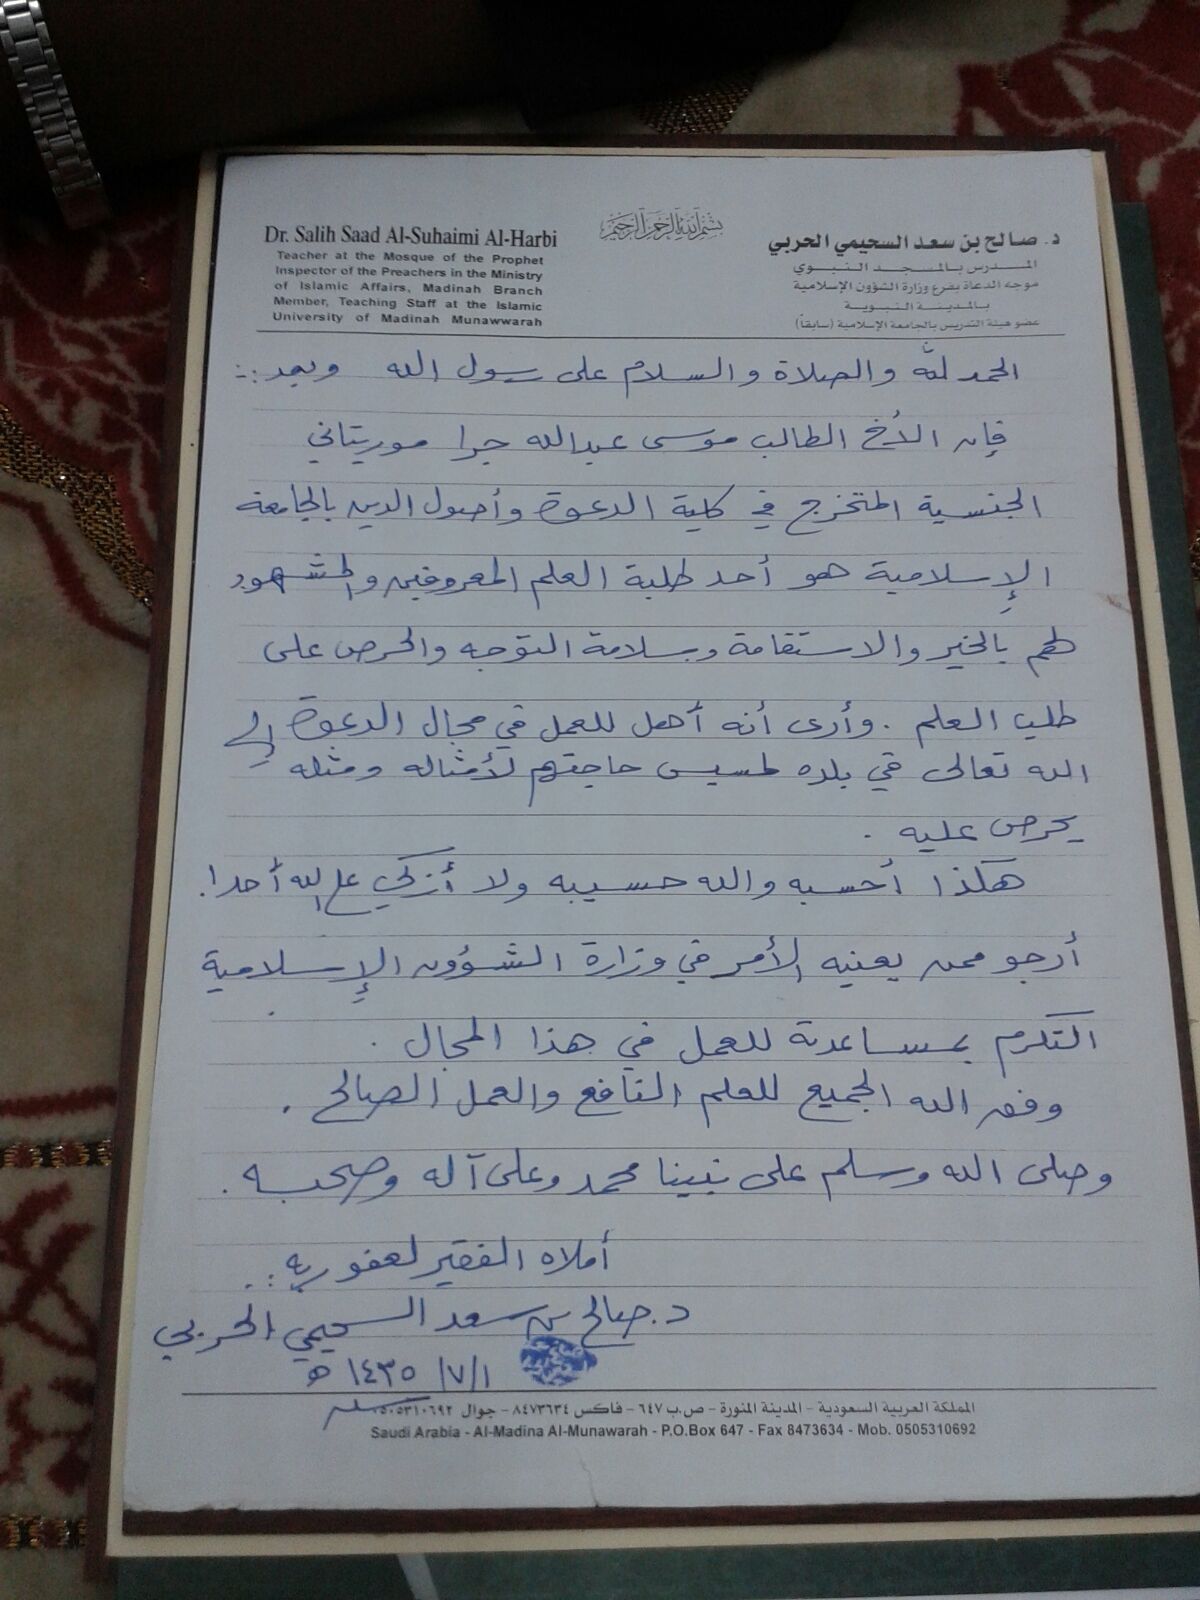 بسم الله الرحمن الرحيم
Dr. Salih Saad Al-Suhaimi Al-Harbi
Teacher at the Mosque of the Prophet
Inspector of the Preachers in the Ministry
of Islamic Affairs, Madinah Branch
Member, Teaching Staff at the Islamic
University of Madinah Munawwarah
د. صالح بن سعد السحيمي الحربي
المدرس بالمسجد النبوي
موجه الدعاة بفرع وزارة الشؤون الإسلامية
بالمدينة النبوية
عضو هيئة التدريس بالجامعة الإسلامية (سابقاً)
الحمد لله والصلاة والسلام على رسول الله وبعد :-
فإن الأخ الطالب موسى عبدالله جرا موريتاني
الجنسية المتخرج في كلية الدعوة وأصول الدين بالجامعة
الإسلامية هو أحد طلبة العلم المعروفين والمشهود
لهم بالخير والاستقامة وسلامة التوجه والحرص على
طلب العلم . وأرى أنه أهل للعمل في مجال الدعوة إلى
الله تعالى في بلده لمسيس حاجتهم لأمثاله ومثله
يحرص عليه .
هكذا أحسبه والله حسيبه ولا أزكي على الله أحدا .
أرجو ممن يعنيه الأمر في وزارة الشؤون الإسلامية
التكرم بمساعدته للعمل في هذا المجال .
وفق الله الجميع للعلم النافع والعمل الصالح .
وصلى الله وسلم على نبينا محمد وعلى آله وصحبه .
أملاه الفقير لعفو ربه :.
د. صالح بن سعد السحيمي الحربي
١/٧/١٤٣٥ ه
المملكة العربية السعودية - المدينة المنورة - ص.ب ٦٤٧ - فاكس ٨٤٧٣٦٣٤ - جوال ٠٥٠٥٣١٠٦٩٢
Saudi Arabia - Al-Madina Al-Munawarah - P.O.Box 647 - Fax 8473634 - Mob. 0505310692